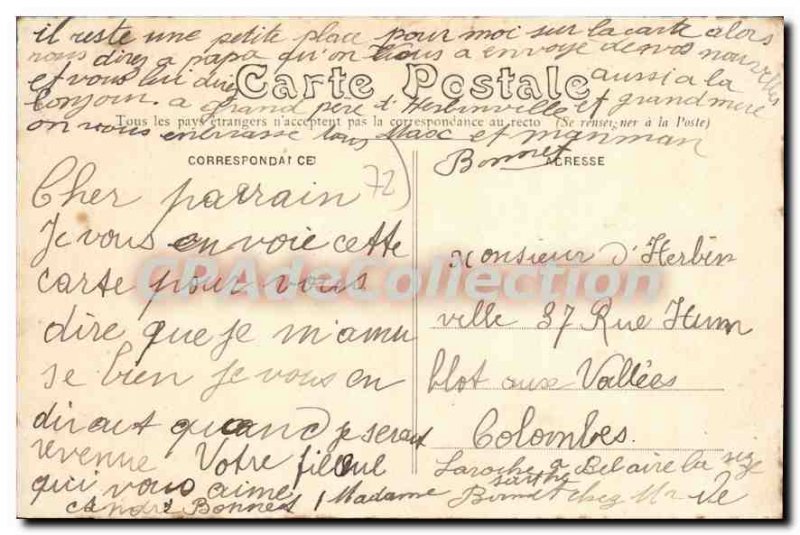 il reste une petite place pour moi sur la carte alors
vous direz a papa qu'on vous a envoyé de nos nouvelles
et vous lui direz aussi a la
bonjour. a grand père d'Herbinville et grand mère
Carte Postale
Tous les pays étrangers n'acceptent pas la correspondance au recto (Se renseigner à la Poste)
on vous enbrasse tous et manman
Bonnet
CORRESPONDANCE
ADRESSE
72
Cher parrain
Je vous en voie cette
carte pour vous
dire que je m'amu
se bien je vous en
dirait quand je serait
revenue Votre filleul
qui vous aime
André Bonnet
Monsieur d'Herbin
ville 37 Rue Hum
blot aux Vallées
Colombes.
Laroche a Bel aire la
sarthe
Madame Bonnet chez Mr De
CPAdeCollection